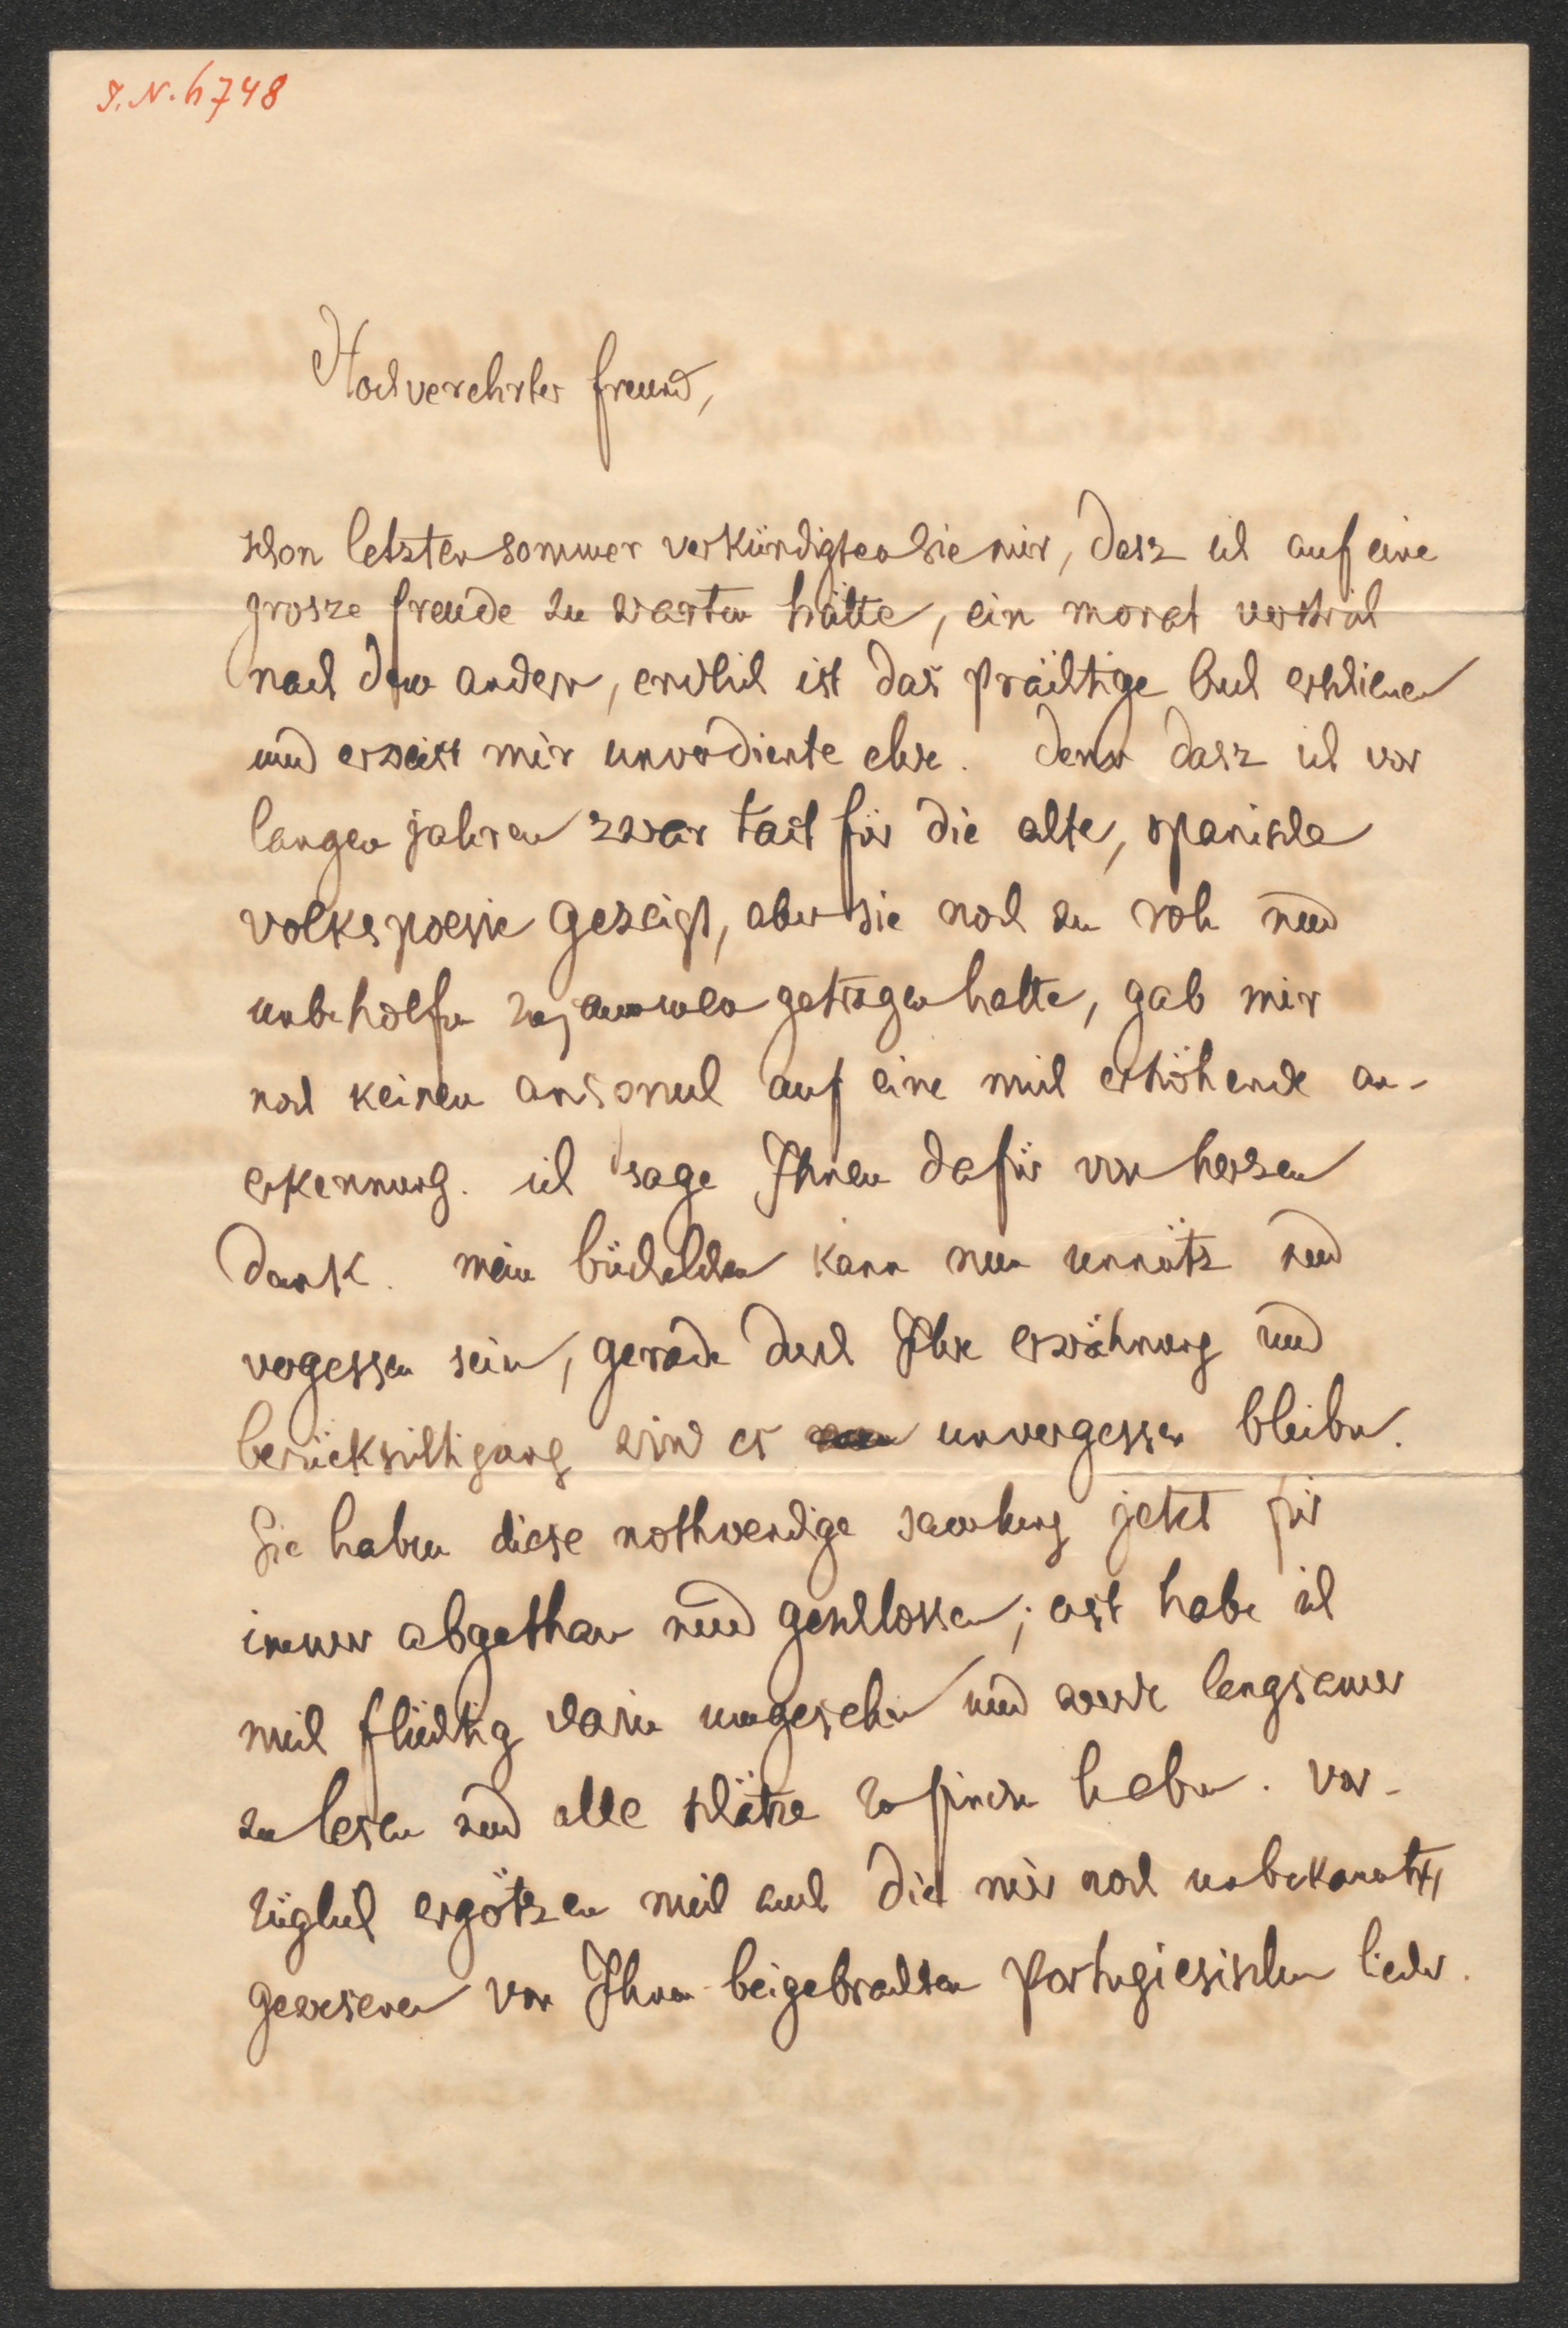 I. N. 6748
Hochverehrter freund,
schon letzten sommer verkündigten Sie mir, dasz ich auf eine
grosze freude zu warten hätte, ein monat verstrich
nach dem andern, endlich ist das prächtige buch erschienen
und erweist mir unverdiente ehre. denn dasz ich vor
langen jahren zwar tact für die alte, spanische
volkspoesie gezeigt, aber sie noch zu roh und
unbeholfen zusammen getragen hatte, gab mir
noch keinen anspruch auf eine mich erhöhende an-
erkennung. ich sage Ihnen dafür von herzen
dank. mein büchelchen kann nun unnütz und
vergessen sein, gerade durch Ihre erwähnung und
berücksichtigung wird es unvergessen bleiben.
Sie haben diese nothwendige samlung jetzt für
immer abgethan und geschlossen; erst habe ich
mich flüchtig darin umgesehn und werde langsamer
zu lesen und alle schätze zu finden haben. vor-
züglich ergötzen mich auch die mir noch unbekannt
gewesenen von Ihnen beigebrachten portugiesischen lieder.